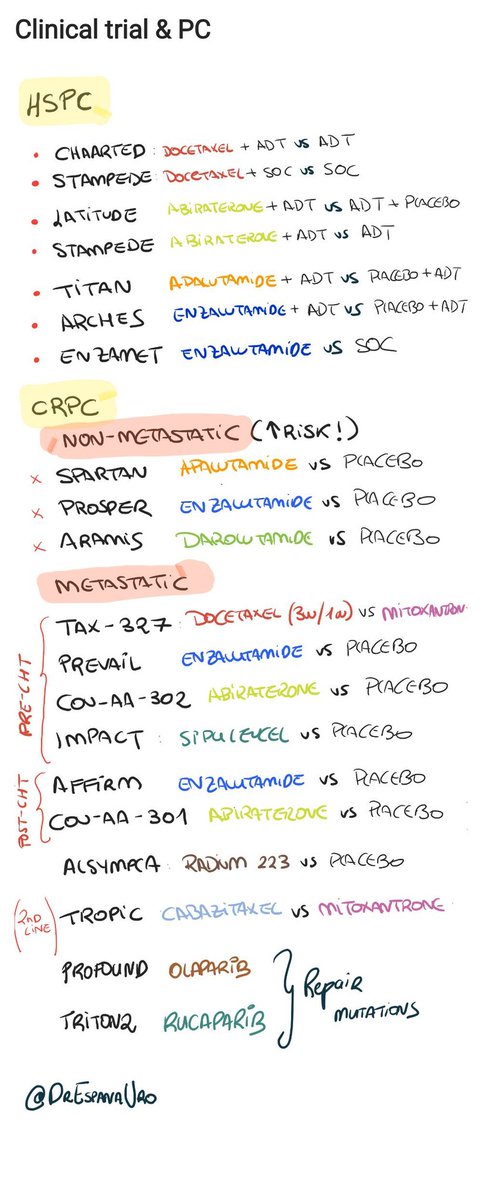 Clinical trial & PC
HSPC
• CHAARTED: DOCETAXEL + ADT vs ADT
• STAMPEDE: DOCETAXEL + SOC vs SOC
• LATITUDE ABIRATERONE + ADT vs ADT + PLACEBO
• STAMPEDE ABIRATERONE + ADT vs ADT
• TITAN APALUTAMIDE + ADT vs PLACEBO + ADT
• ARCHES ENZALUTAMIDE + ADT vs PLACEBO + ADT
• ENZAMET ENZALUTAMIDE vs SOC
CRPC
NON-METASTATIC (↑RISK!)
x SPARTAN APALUTAMIDE vs PLACEBO
x PROSPER ENZALUTAMIDE vs PLACEBO
x ARAMIS DAROLUTAMIDE vs PLACEBO
METASTATIC
PRE-CHT
TAX-327: DOCETAXEL (3w/1w) vs MITOXANTRON
PREVAIL ENZALUTAMIDE vs PLACEBO
COU-AA-302 ABIRATERONE vs PLACEBO
IMPACT: SIPULEUCEL vs PLACEBO
POST-CHT
AFFIRM ENZALUTAMIDE vs PLACEBO
COU-AA-301 ABIRATERONE vs PLACEBO
ALSYMPCA: RADIUM 223 vs PLACEBO
(2ND LINE) TROPIC CABAZITAXEL vs MITOXANTRONE
PROFOUND OLAPARIB
TRITON2 RUCAPARIB
} Repair
MUTATIONS
@DRESPANAURO